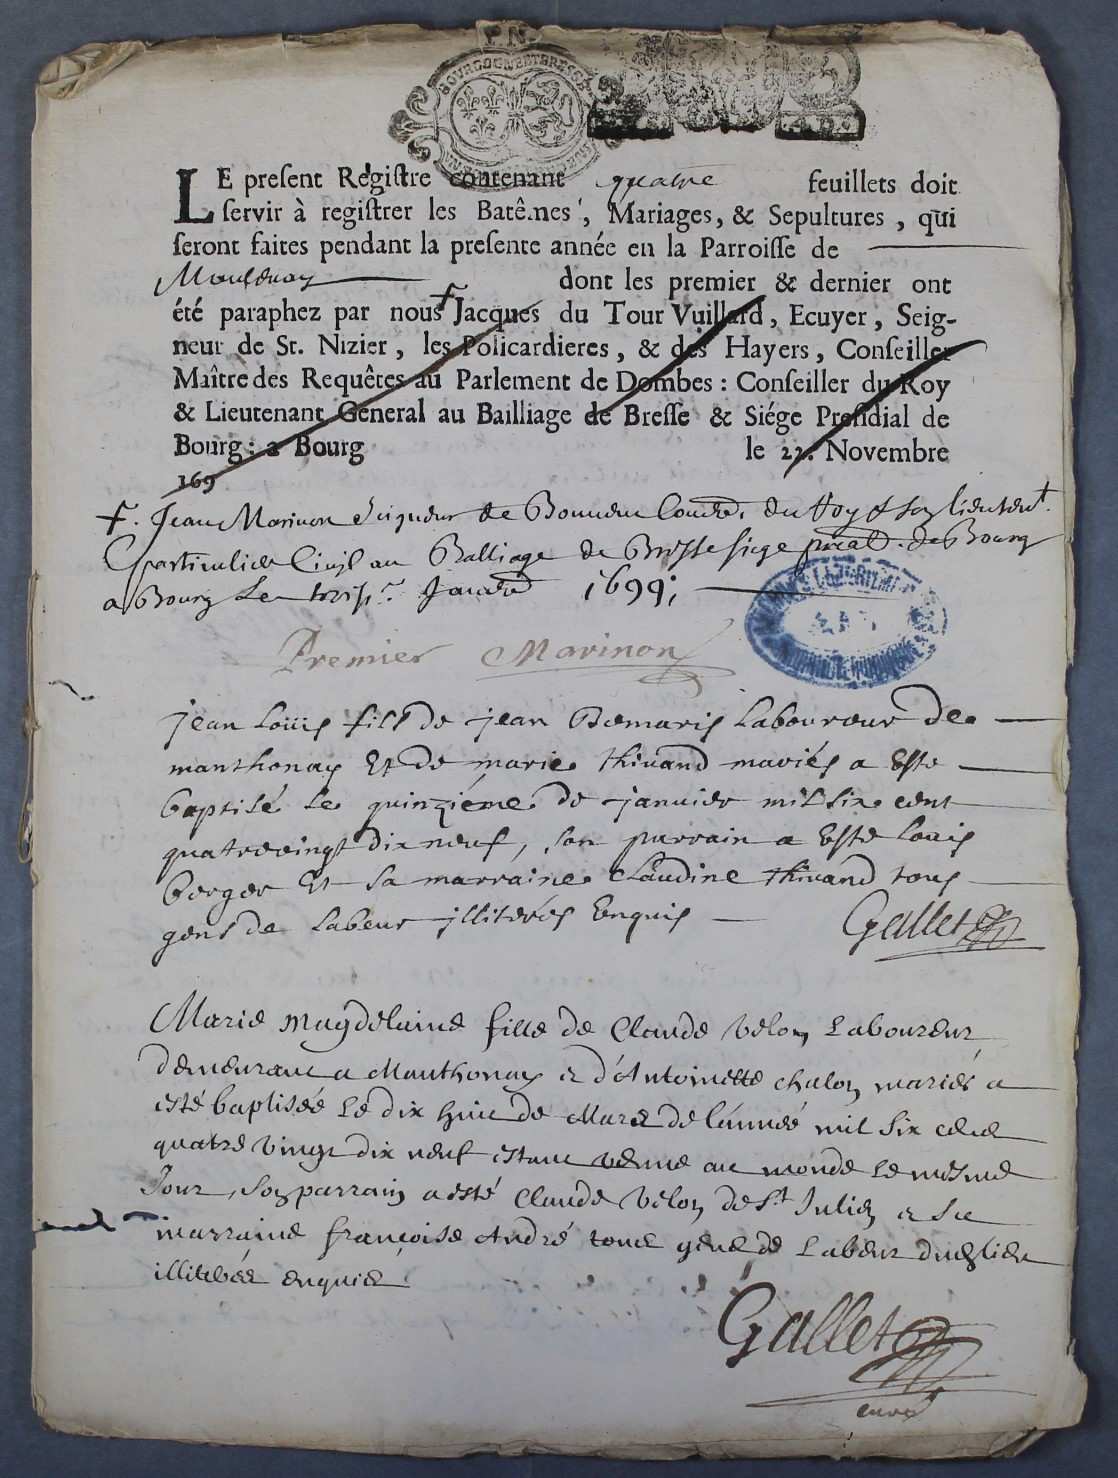 P N
BOURGOGNE ET BRESSE
LE present Registre contenant quatre feuillets doit
servir à registrer les Batêmes, Mariages, & Sepultures, qui
seront faites pendant la presente année en la Parroisse de
Mantenay dont les premier & dernier ont
été paraphez par nous Jacques du Tour Vuillard, Ecuyer, Seig-
neur de St. Nizier, les Policardieres, & des Hayers, Conseiller
Maître des Requêtes au Parlement de Dombes: Conseiller du Roy
& Lieutenant General au Bailliage de Bresse & Siége Presidial de
Bourg: a Bourg le 22. Novembre
169
Jean Marinon Seigneur de Bonneu Conser. du Roy & son lieutent.
particulier Civil au Balliage de Bresse siege preal. de Bourg
a Bourg le Janvier 1699;
Premier Marinon
jean Loüis fils de jean Bemaris Laboureur de
manthonay Et de marie thivand mariés a Este
baptisé le quinziéme de janvier mil six cent
quatrevingt dix neuf, son parrain a Este Louis
berger Et sa marraine Claudine thivand tous
gens de Labeur illiterés Enquis Gallet
Marie Magdelaine fille de Claude Velon Laboureur
demeurant a Manthonay & d'Antoinette chalon mariés a
esté baptisée Le dix huit de Mars de l'année mil six cens
quatre vingt dix neuf estant venue au monde le mesme
Jour, son parrain a esté Claude Velon de St Julien & sa
marraine françoise André tous gens de Labeur dudit lieu
illiterés enquis
Gallet
curé